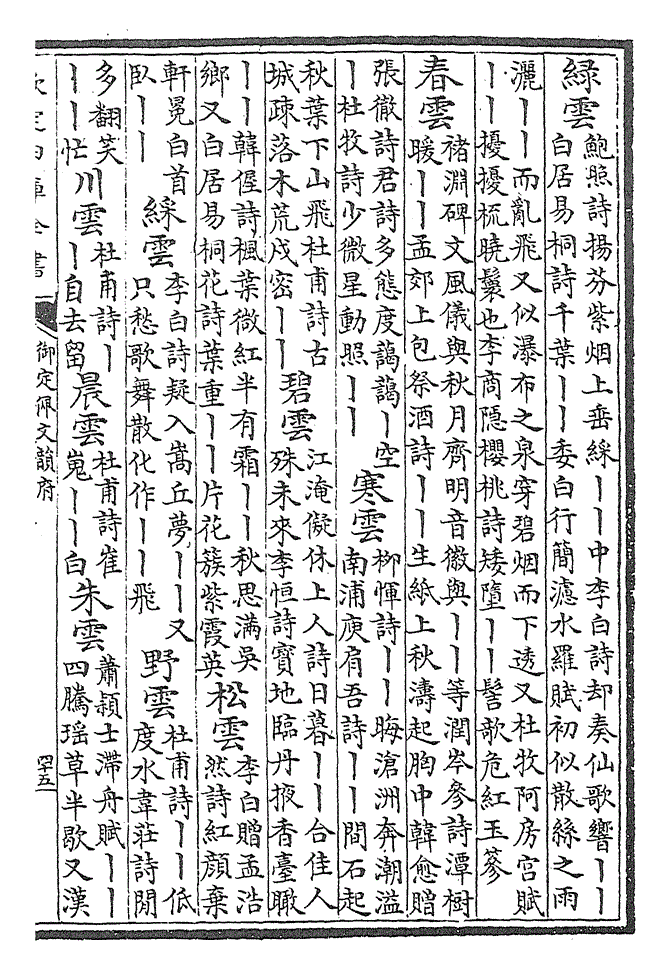 綠雲
鮑照詩揚芬紫烟上垂綵丨丨中李白詩却奏仙歌響丨丨
白居易桐詩千葉丨丨委白行簡濾水羅賦初似散絲之雨
灑丨丨而亂飛又似瀑布之泉穿碧烟而下透又杜牧阿房宮賦
丨丨擾擾梳曉鬟也李商隱櫻桃詩矮墮丨丨髻歌危紅玉篸
春雲
褚淵碑文風儀與秋月齊明音徽與丨丨等潤岑參詩潭樹
暖丨丨孟郊上包祭酒詩丨丨生紙上秋濤起胸中韓愈贈
張徹詩君詩多態度藹藹丨空
丨杜牧詩少微星動照丨丨
寒雲
柳惲詩丨丨晦滄洲奔潮溢
南浦庾肩吾詩丨丨間石起
秋葉下山飛杜甫詩古
城疎落木荒戍密丨丨
碧雲
江淹儗休上人詩日暮丨丨合佳人
殊未來李恒詩寳地臨丹掖香臺瞰
丨丨韓偓詩楓葉微紅半有霜丨丨秋思滿吳
鄉又白居易桐花詩葉重丨丨片花簇紫霞英
松雲
李白贈孟浩
然詩紅顔棄
軒冕白首
臥丨丨
綵雲
李白詩疑入嵩丘夢丨丨又
只愁歌舞散化作丨丨飛
野雲
杜甫詩丨丨低
度水韋莊詩閒
多翻笑
丨丨忙
川雲
杜甫詩丨
丨自去留
晨雲
杜甫詩崔
嵬丨丨白
朱雲
蕭頴士滯舟賦丨丨
四騰瑶草半歇又漢
欽定四庫全書
御定佩文韻府
四十五